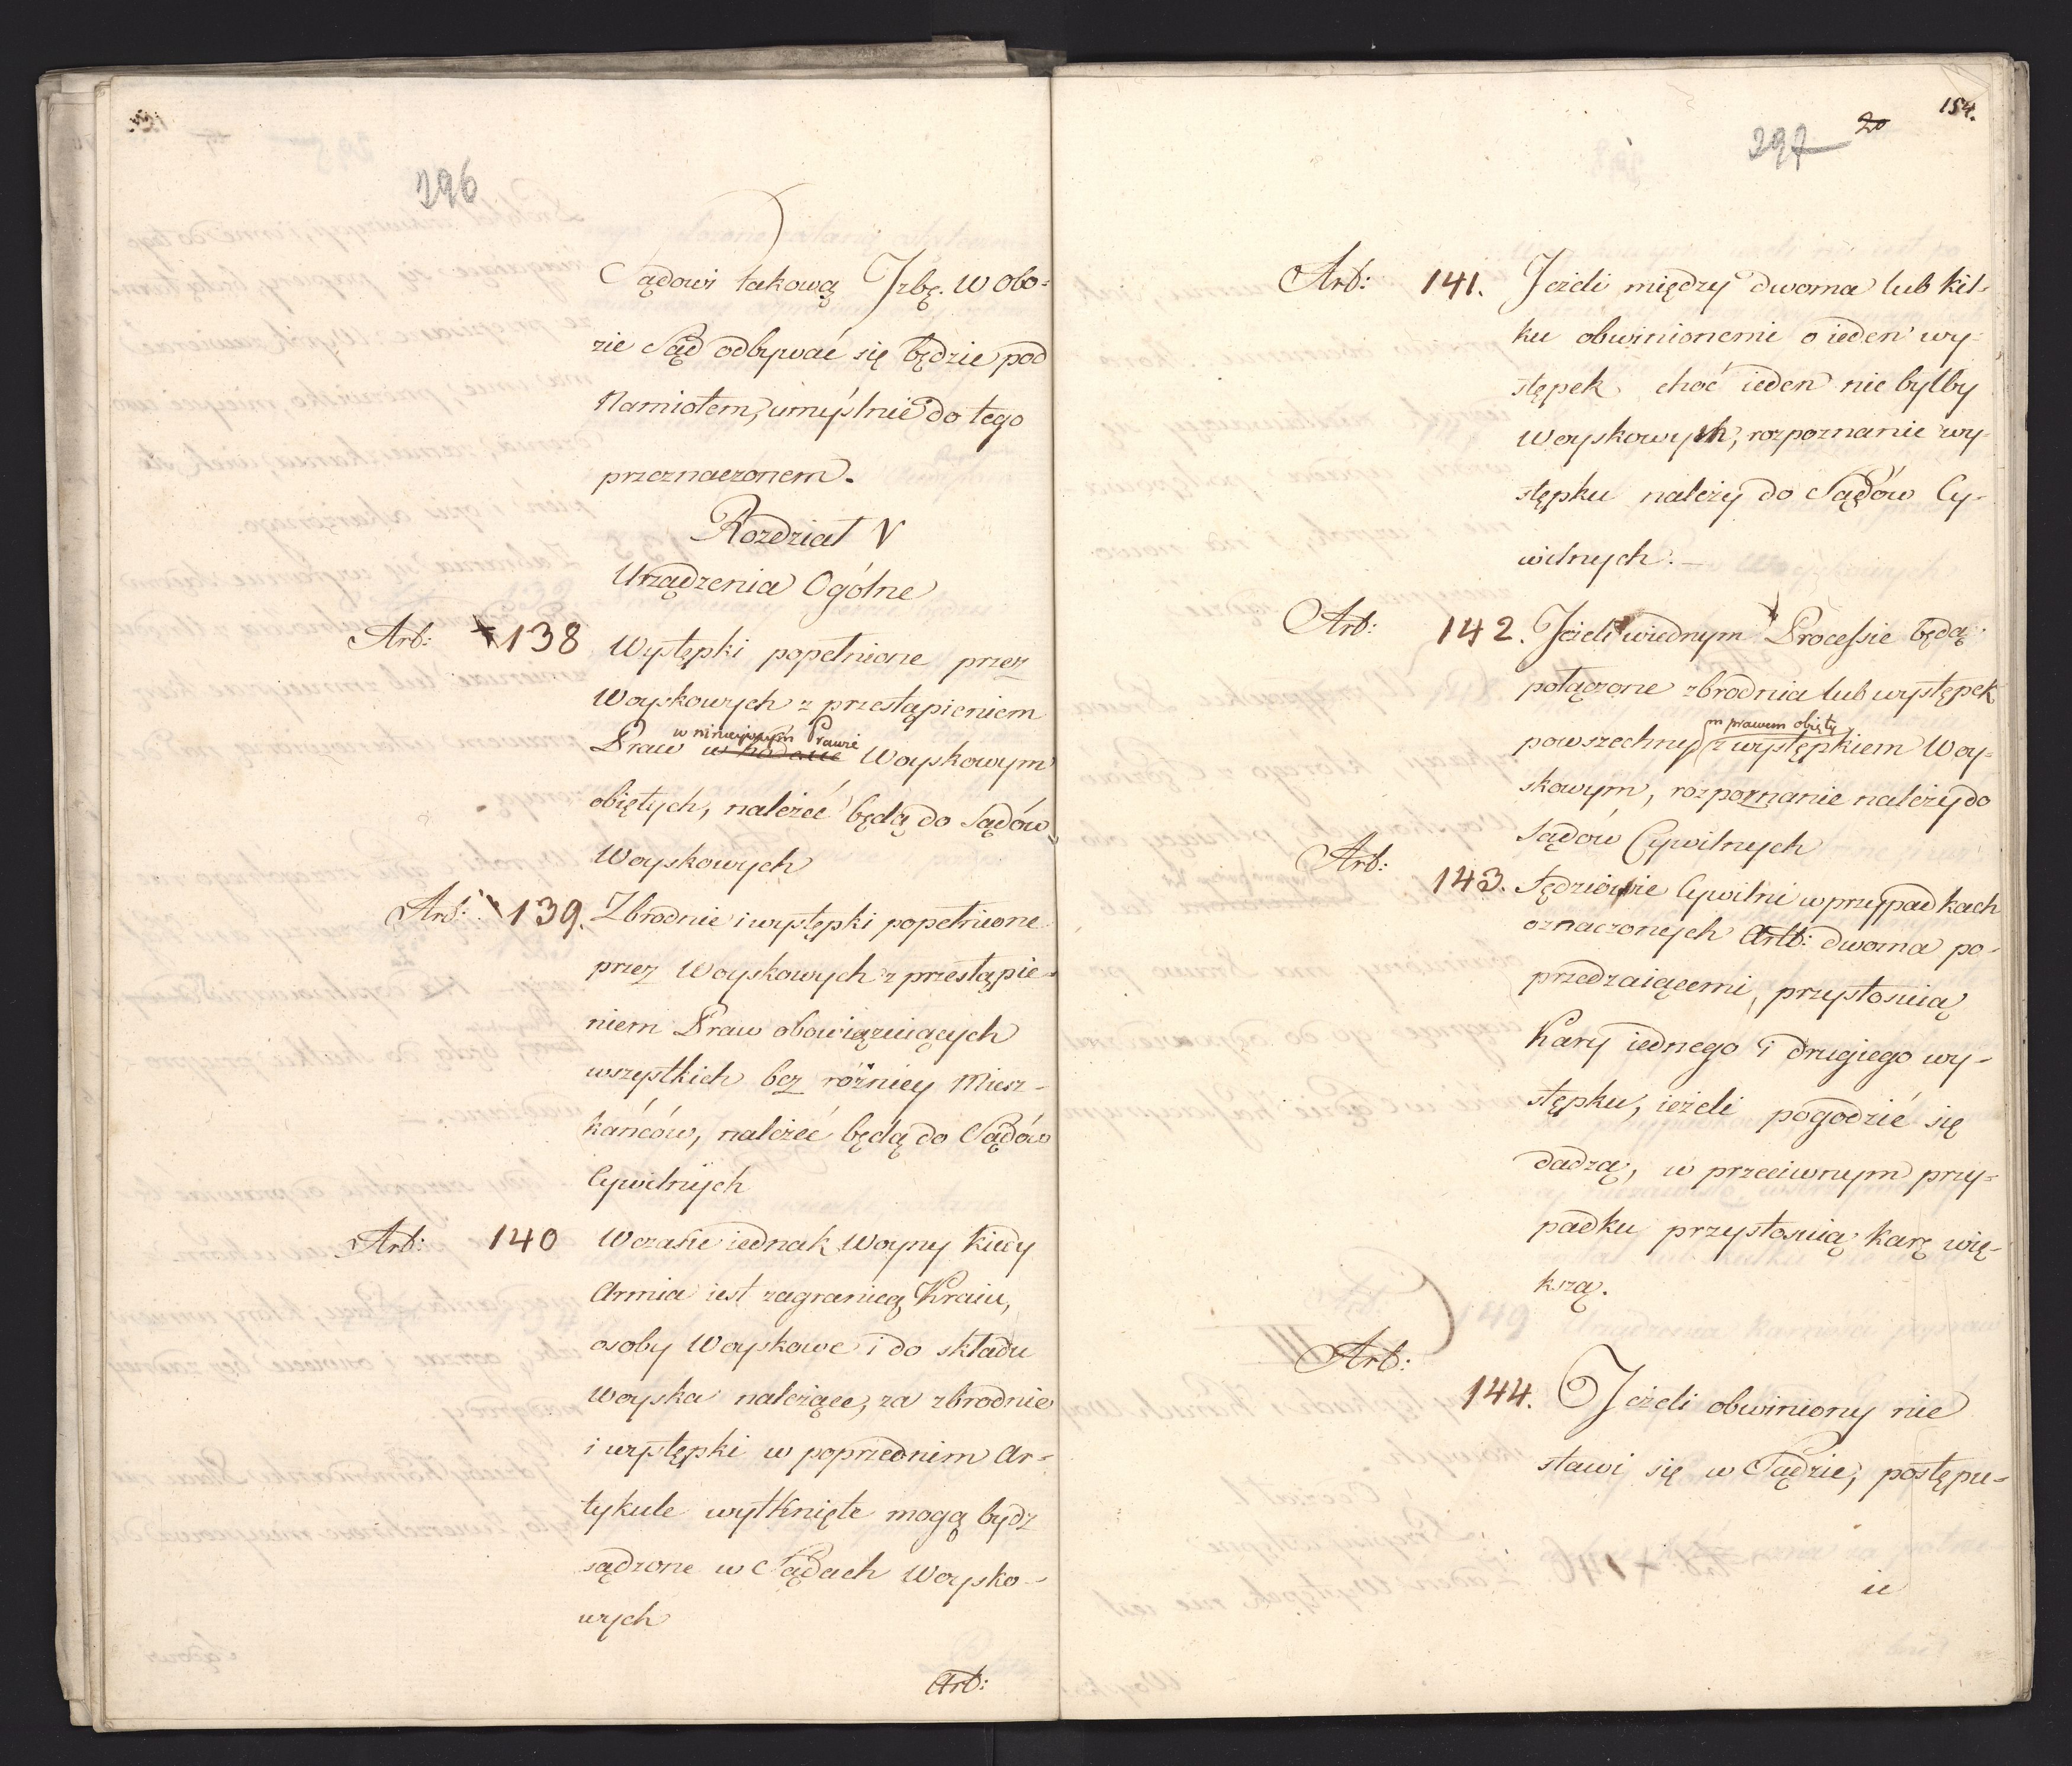 296
Sądowi takową Jzbę. W obo=
zie Sąd odbywać się będzie pod
Namiotem, umyślnie do tego
przeznaczonem.
Rozdział V
Urządzenia Ogólne
Art: 138 Występki popełnione przez
Woyskowych z przestąpieniem
w ninieyszym Prawie
Praw w Woyskowym
obiętych, należeć będą do Sądów
Woyskowych
Art: 139. Zbrodnie i występki popełnione
przez Woyskowych z przestąpie=
niem Praw obowiązuiących
wszystkich bez różnicy Miesz-
kańców, należeć będą do Sądów
Cywilnych
Art: 140 W czasie iednak Woyny kiedy
Armia iest zagranicą Kraiu,
osoby Woyskowe i do składu
Woyska należące, za zbrodnie
i występki w poprzednim Ar=
tykule wytknięte mogą bydz
sądzone w Sądach Woysko-
wych
Art:
154.
297 20
Art: 141. Jeżeli między dwoma lub kil-
ku obwinionemi o ieden wy=
stępek choć ieden nie byłby
Woyskowych, rozpoznanie wy-
stępku należy do Sądów Cy-
wilnych.-
Art: 142. Jeżeli w iednym Procesie będą
połączone zbrodnia lub występek
m prawem obięty
powszechny z występkiem Woy=
skowym, rozpoznanie należy do
Sądow Cywilnych
Art: 143. Sędziowie Cywilni w przypadkach
oznaczonych Artt: dwoma po-
przedzaiącemi, przystosuią
Kary iednego i drugiego wy-
stępku, ieżeli pogodzić się
dadzą, w przeciwnym przy=
padku przystosuią karę wię-
kszą.
Art: 144. Jeżeli obwiniony nie
stawi się w Sądzie, postępu=
ie